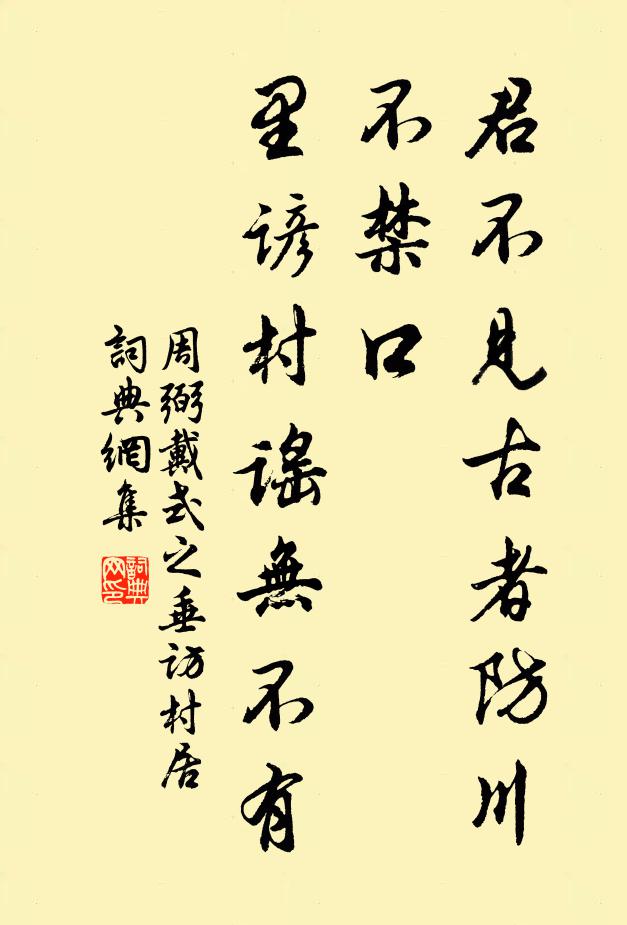 君不見古者防川
不禁口
里諺村謡無不有
周弼戴式之垂訪村居
詞典網集
詞典
网印